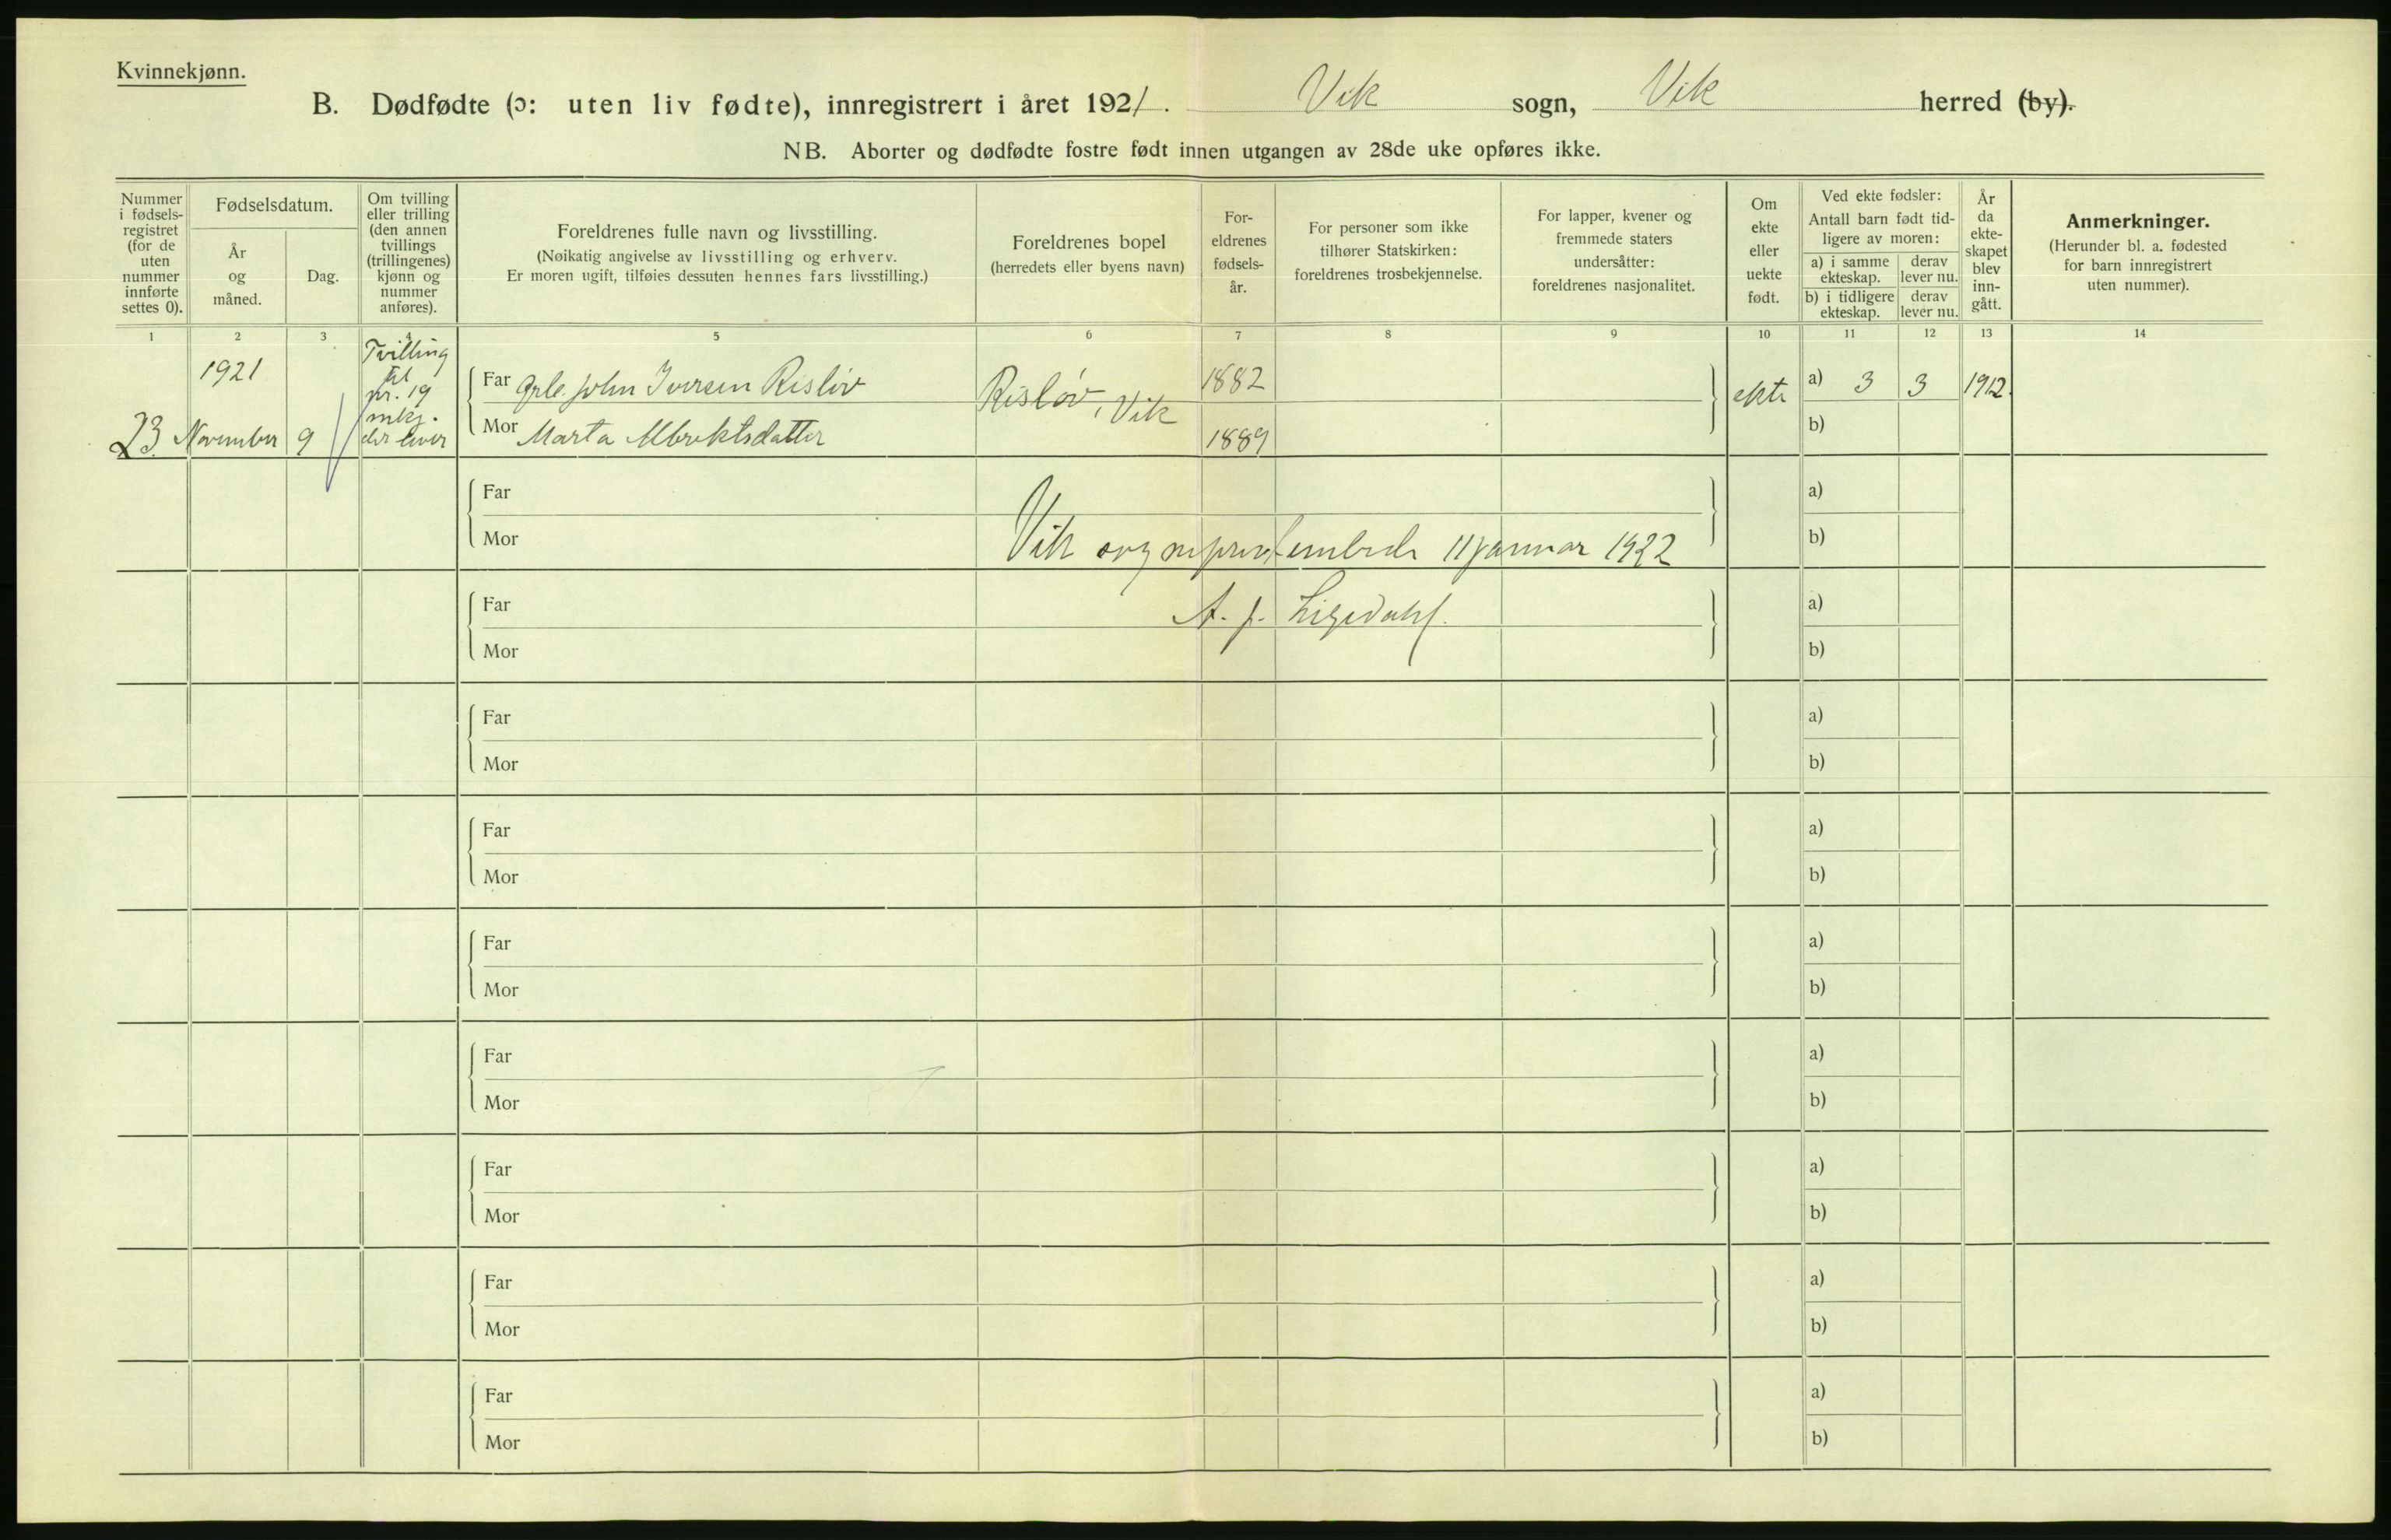 Kvinnekjønn.
B. Dødfødte (ɔ: uten liv fødte), innregistrert i året 1921. Vik sogn, Vik herred (by).
NB. Aborter og dødfødte fostre født innen utgangen av 28de uke opføres ikke.
Nummer i fødsels-registret (for de uten nummer innførte settes 0).
Fødselsdatum.
År og måned.
Dag.
Om tvilling eller trilling (den annen tvillings (trillingenes) kjønn og nummer anføres).
Foreldrenes fulle navn og livsstilling.
(Nøikatig angivelse av livsstilling og erhverv.
Er moren ugift, tilføies dessuten hennes fars livsstilling.)
Foreldrenes bopel
(herredets eller byens navn)
For-eldrenes fødsels-år.
For personer som ikke tilhører Statskirken: foreldrenes trosbekjennelse.
For lapper, kvener og fremmede staters undersåtter: foreldrenes nasjonalitet.
Om ekte eller uekte født.
Ved ekte fødsler:
Antall barn født tid-ligere av moren:
a) i samme ekteskap.
derav lever nu.
b) i tidligere ekteskap.
derav lever nu.
År da ekte-skapet blev inn-gått.
Anmerkninger.
(Herunder bl. a. fødested for barn innregistrert uten nummer).
1 2 3 4 5 6 7 8 9 10 11 12 13 14
23. 1921 November 9
Tvilling
til
nr. 19
mkj.
der lever
Far John Iversen Risløv
Mor Marta Albrektsdatter
Risløv, Vik
1882
1889
ekte
a) 3 3 1912.
b)
Far a)
Mor b)
Vik 11 januar 1922
Far a)
A. J.
Mor b)
Far a)
Mor b)
Far a)
Mor b)
Far a)
Mor b)
Far a)
Mor b)
Far a)
Mor b)
Far a)
Mor b)
Far a)
Mor b)